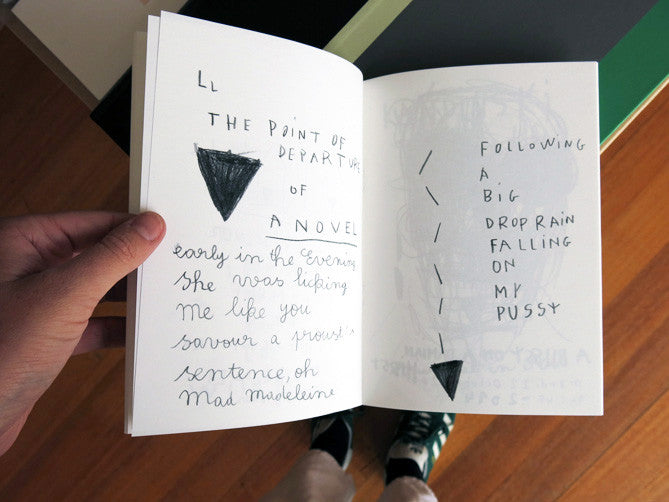 LL
THE POINT OF
DEPARTURE
OF
A NOVEL
early in the Evening
she was licking
me like you
savour a proust's
sentence, oh
mad madeleine
FOLLOWING
A
BIG
DROP RAIN
FALLING
ON
MY
PUSSY